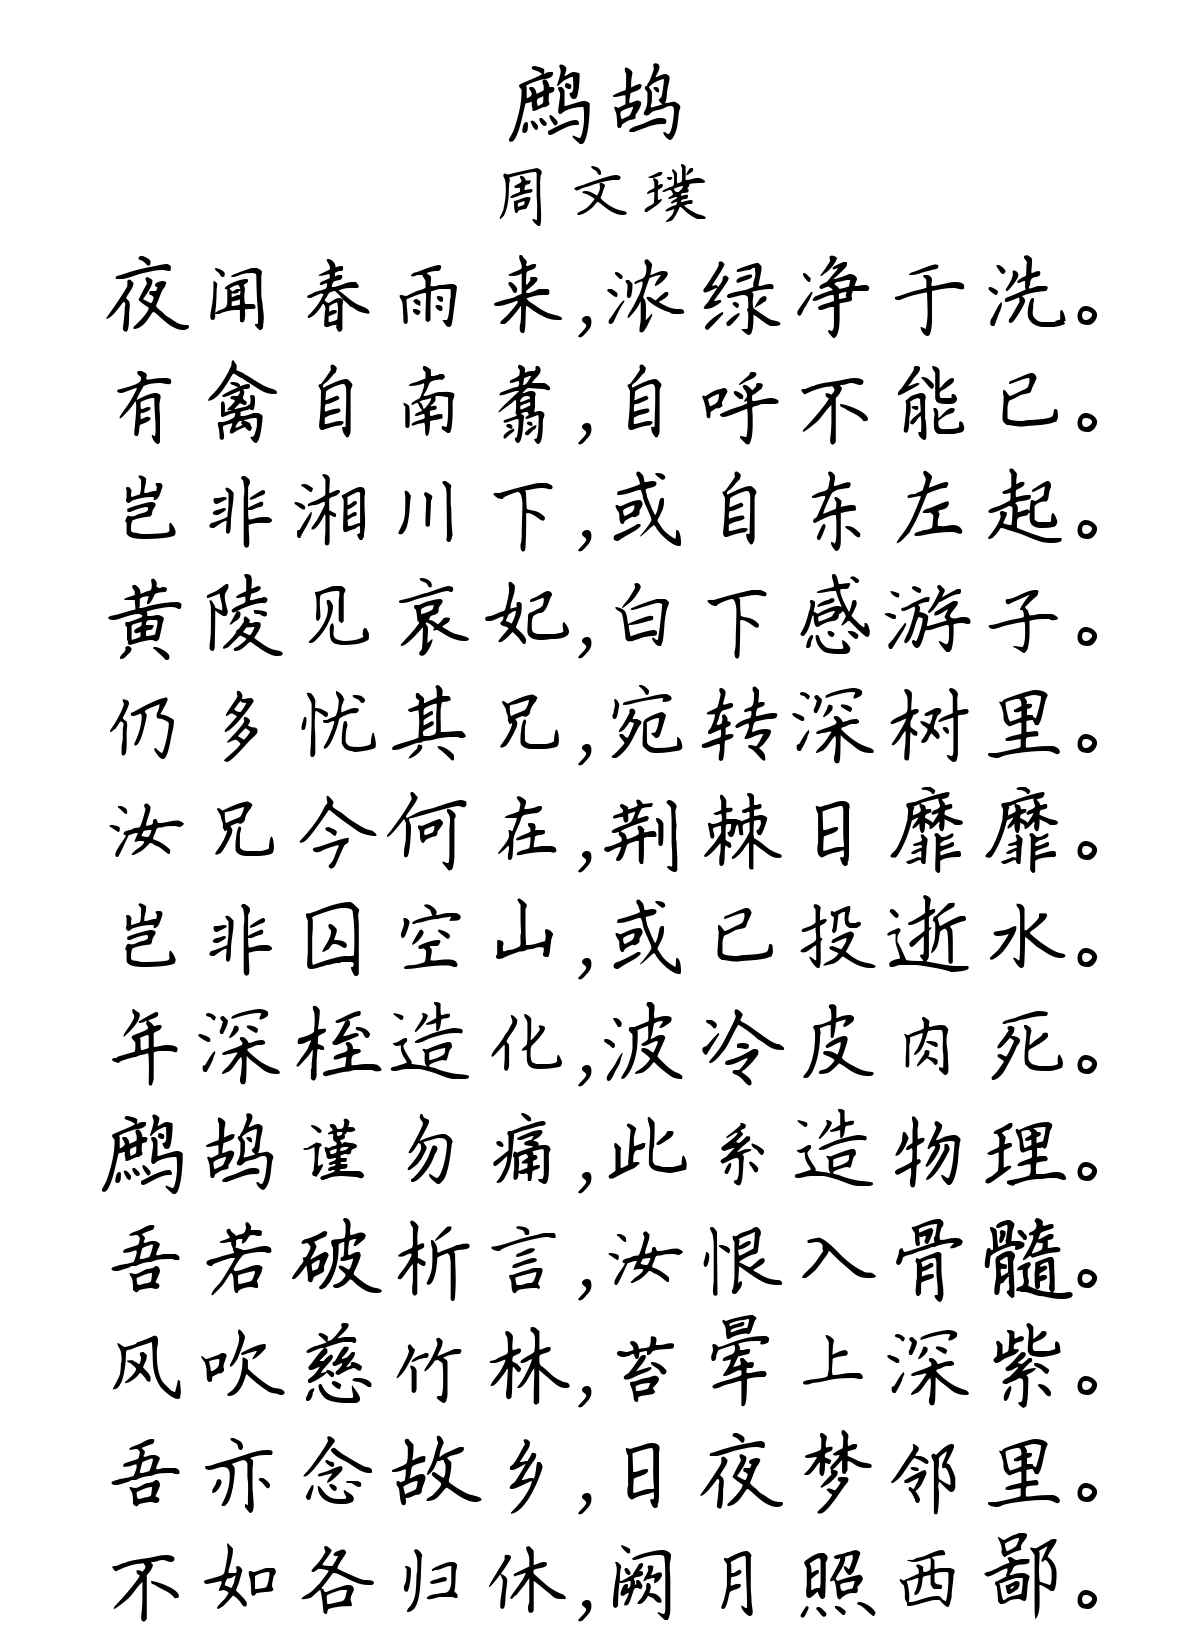 鹧鸪
周文璞
夜闻春雨来,浓绿净于洗。
有禽自南翥,自呼不能已。
岂非湘川下,或自东左起。
黄陵见哀妃,白下感游子。
仍多忧其兄,宛转深树里。
汝兄今何在,荆棘日靡靡。
岂非囚空山,或已投逝水。
年深桎造化,波冷皮肉死。
鹧鸪谨勿痛,此系造物理。
吾若破析言,汝恨入骨髓。
风吹慈竹林,苔晕上深紫。
吾亦念故乡,日夜梦邻里。
不如各归休,阙月照西鄙。